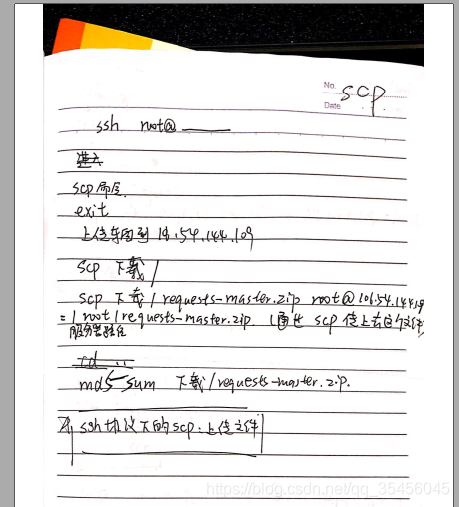 No. scp
Date
ssh root@ ____
进入
scp 命令
exit
上传东西到 10.54.144.109
scp 下载/
scp 下载/requests-master.zip root@106.54.144.109
:/root/requests-master.zip. (通过 scp 传上去这个文件
服务器路径
cd ..
md5sum 下载/requests-master.zip.
ssh协议下的scp.上传文件
https://blog.csdn.net/qq_35456045